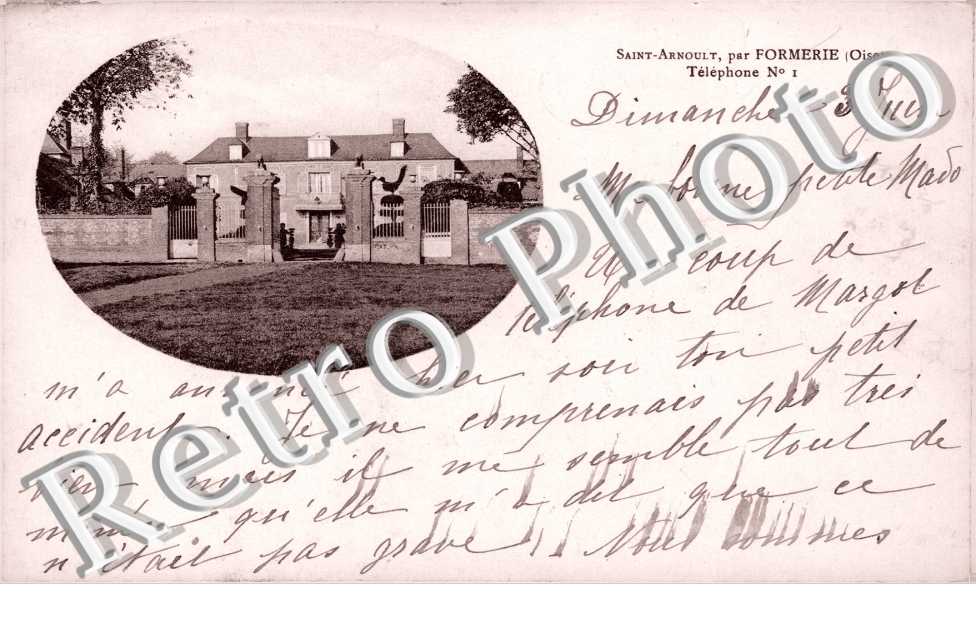 SAINT-ARNOULT, par FORMERIE (Oise
Téléphone No 1
Dimanche 3 Juin
Ma bonne petite Mado
Un coup de
téléphone de Margot
m'a annoncé hier soir ton petit
accident. Je ne comprenais pas très
bien, mais il me semble tout de
même qu'elle m'a dit que ce
n'était pas grave. Nous sommes
Retro Photo
Retro Photo